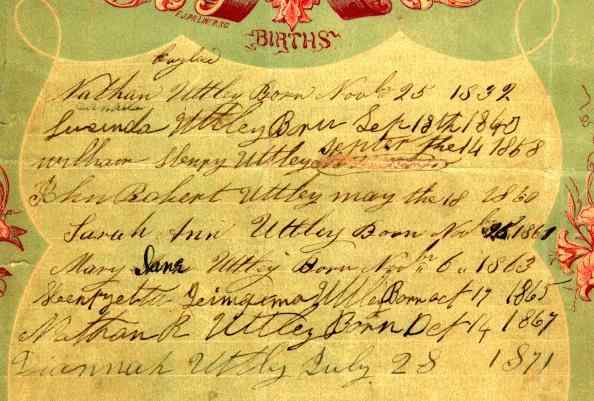 BIRTHS
England
Nathan Uttley Born Novbr 25 1832
Lusinda Uttley Born Sep 18th 1840
William Henry Uttley the 14 1858
John Robert Uttley may the 18 1860
Sarah Ann Uttley Born Nov 1861
Mary Jane Uttley Born Novbr 6 1863
Uttley Born oct 17 1865
Nathan R Uttley Born Oct 14 1867
Diannah Uttley July 28 1871